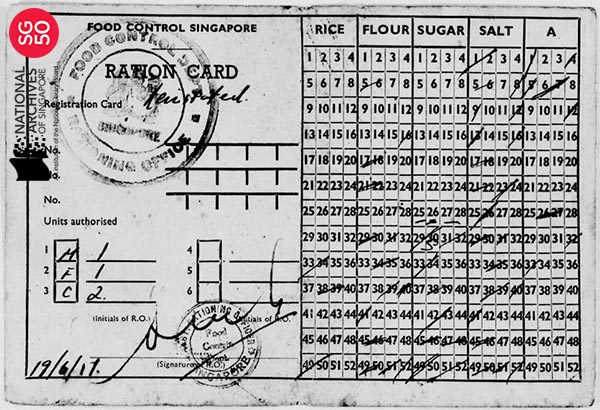 SG
50
NATIONAL
ARCHIVES
OF SINGAPORE
FOOD CONTROL SINGAPORE
FOOD CONTROL
RATION CARD
Registration Card
SINGAPORE
RATIONING OFFICE
No.
No.
No.
Units authorised
1 M 1 4
2 F 1 5
3 C 2. 6
(Initials of R.O.) (Initials of R.O.)
RATIONING OFFICER
Food
Control
SINGAPORE
(Signature R.O.)
RICE FLOUR SUGAR SALT A
1 2 3 4 1 2 3 4 1 2 3 4 1 2 3 4 1 2 3 4
5 6 7 8 5 6 7 8 5 6 7 8 5 6 7 8 5 6 7 8
9 10 11 12 9 10 11 12 9 10 11 12 9 10 11 12 9 10 11 12
13 14 15 16 13 14 15 16 13 14 15 16 13 14 15 16 13 14 15 16
17 18 19 20 17 18 19 20 17 18 19 20 17 18 19 20 17 18 19 20
21 22 23 24 21 22 23 24 21 22 23 24 21 22 23 24 21 22 23 24
25 26 27 28 25 26 27 28 25 26 27 28 25 26 27 28 25 26 27 28
29 30 31 32 29 30 31 32 29 30 31 32 29 30 31 32 29 30 31 32
33 34 35 36 33 34 35 36 33 34 35 36 33 34 35 36 33 34 35 36
37 38 39 40 37 38 39 40 37 38 39 40 37 38 39 40 37 38 39 40
41 42 43 44 41 42 43 44 41 42 43 44 41 42 43 44 41 42 43 44
45 46 47 48 45 46 47 48 45 46 47 48 45 46 47 48 45 46 47 48
49 50 51 52 49 50 51 52 49 50 51 52 49 50 51 52 49 50 51 52